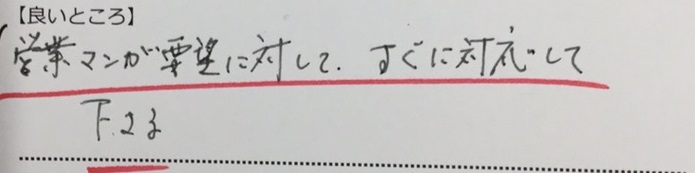 【良いところ】
営業マンが要望に対して、すぐに対応して
下さる